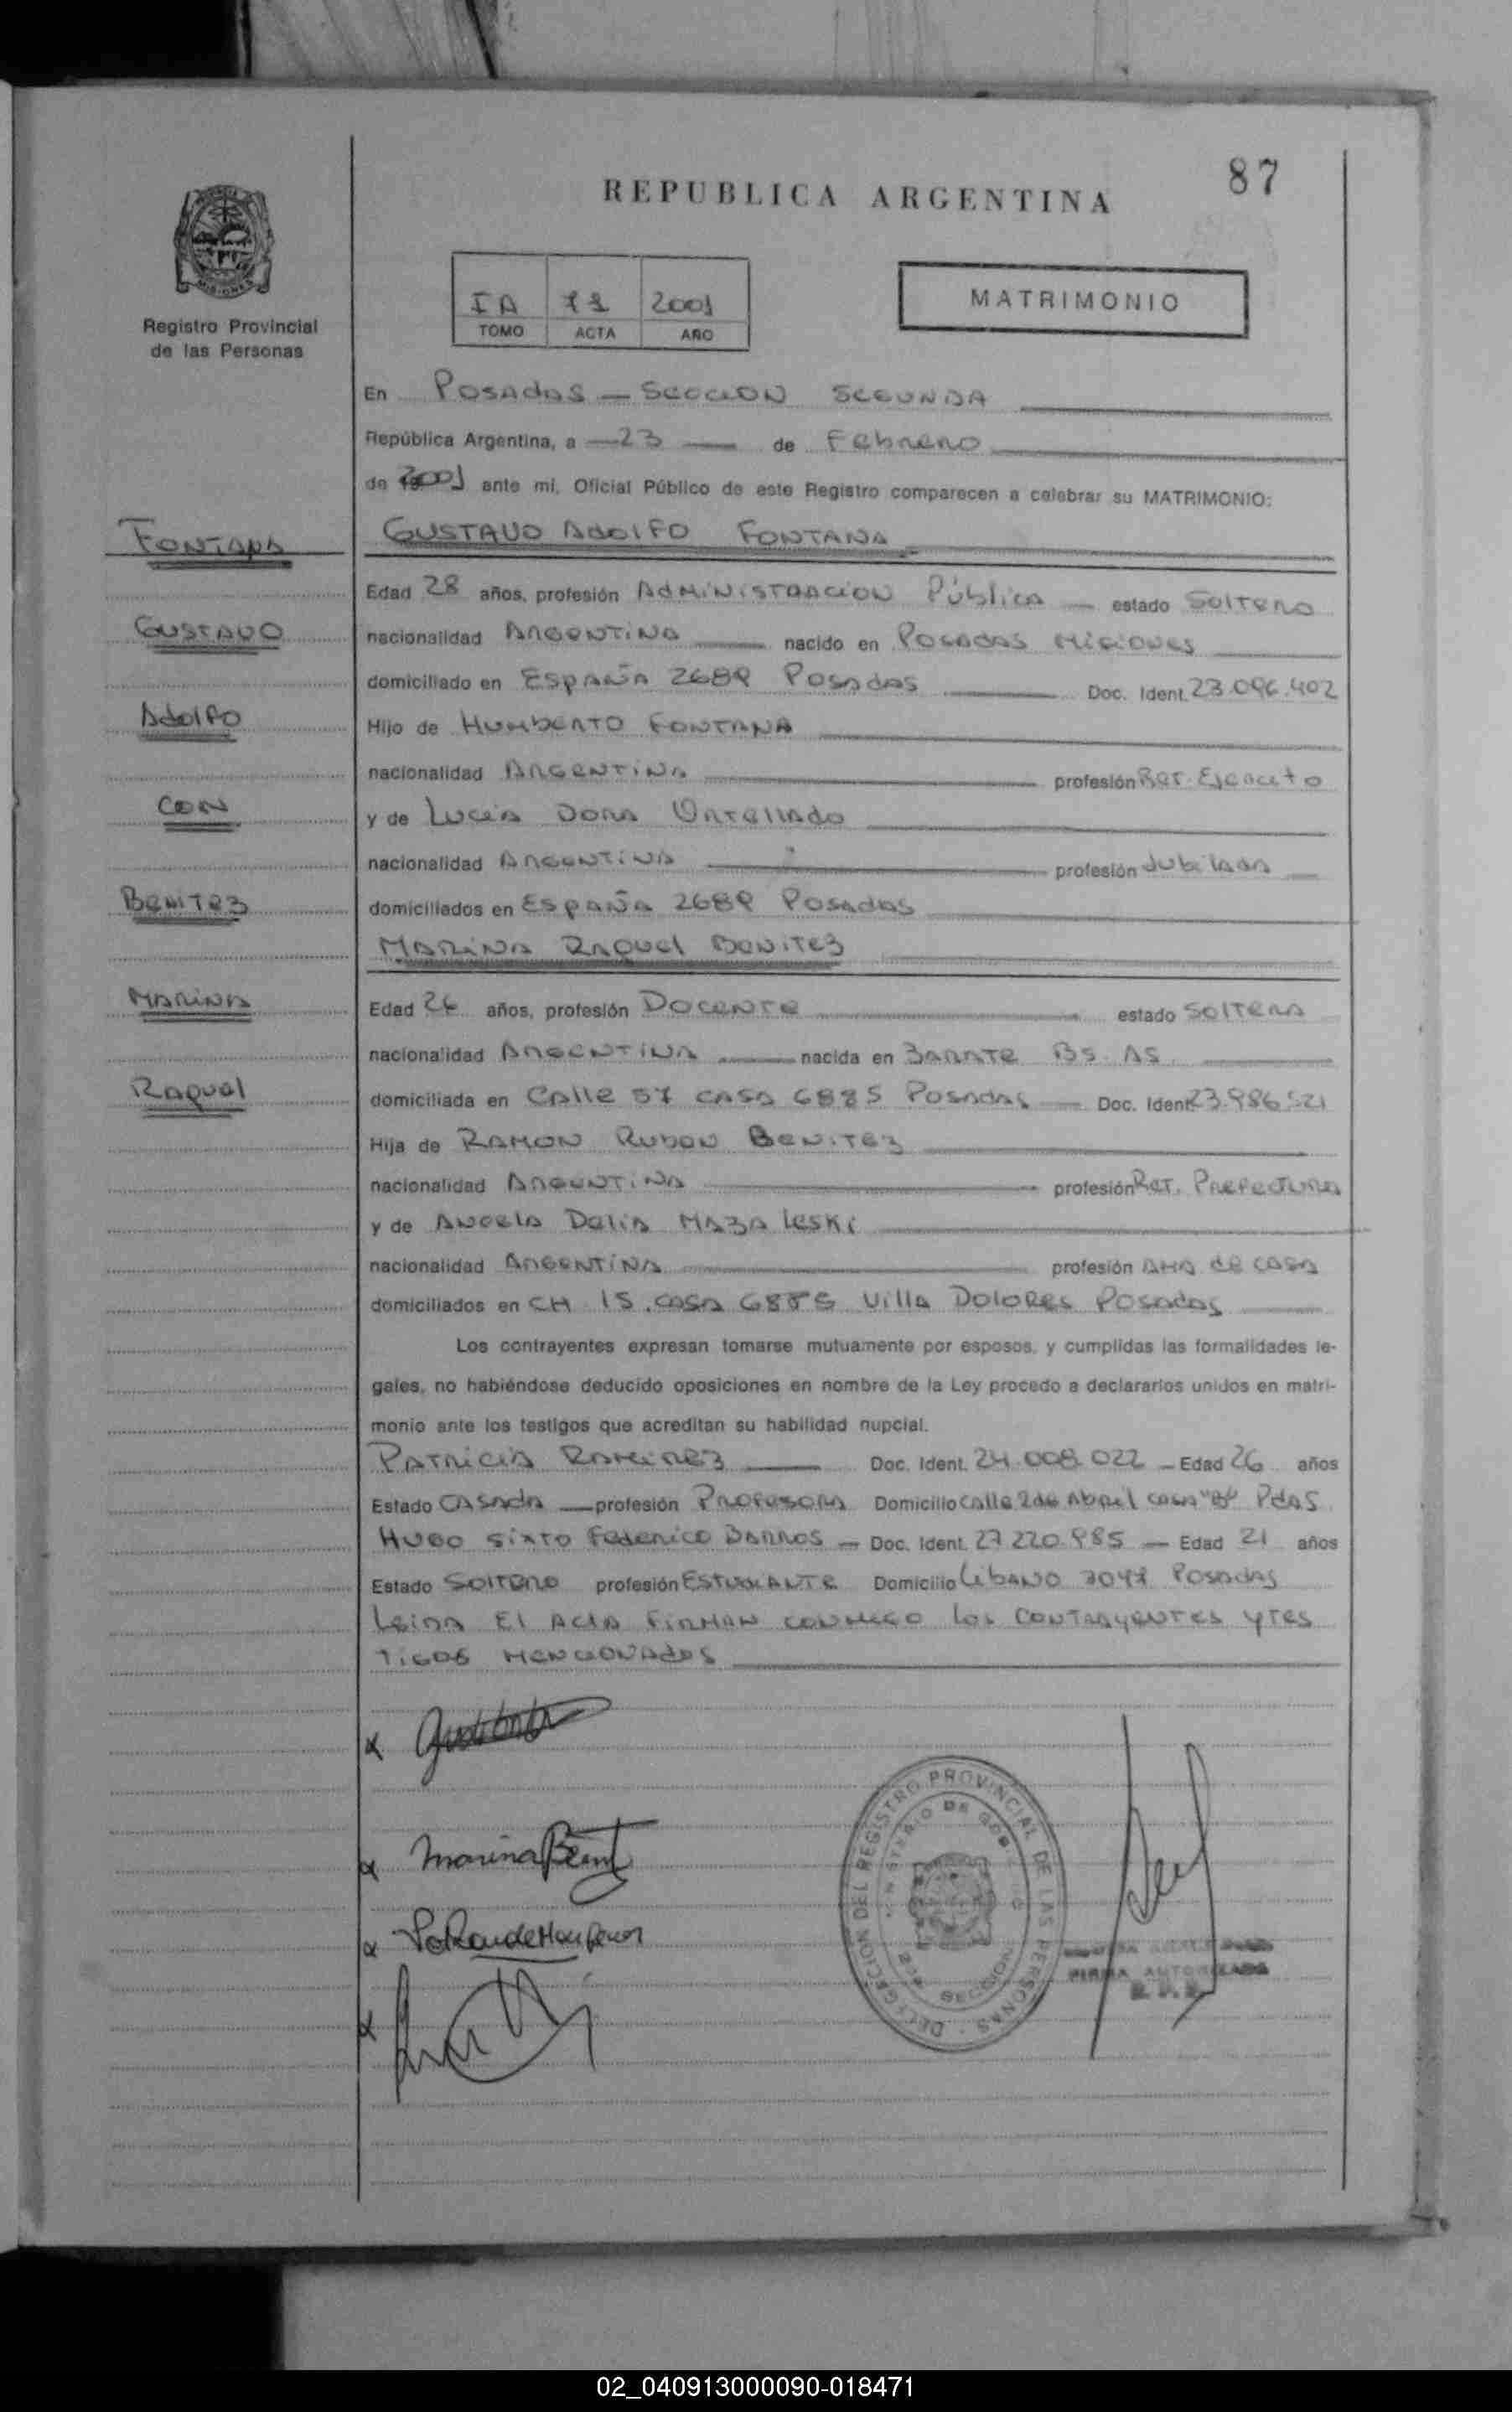 87
REPUBLICA ARGENTINA
MISIONES
Registro Provincial
de las Personas
IA 2001
TOMO ACTA AÑO
MATRIMONIO
En Posadas — Seccion Segunda
República Argentina, a — 23 — de Febrero
de 2001 ante mí, Oficial Público de este Registro comparecen a celebrar su MATRIMONIO:
FONTANA
GUSTAVO ADOLFO FONTANA
Edad 28 años, profesión Administracion Pública — estado Soltero
GUSTAVO
nacionalidad Argentina nacido en Posadas Misiones
domiciliado en España 2689 Posadas Doc. Ident. 23.096.402
Adolfo
Hijo de Humberto Fontana
nacionalidad Argentina profesión Ret. Ejercito
CON
y de Lucia Dora Ortellado
nacionalidad Argentina profesión Jubilada
BENITEZ
domiciliados en España 2689 Posadas
MARINA RAQUEL BENITEZ
MARINA
Edad 26 años, profesión Docente estado Soltera
nacionalidad Argentina nacida en Zarate Bs. As.
Raquel
domiciliada en Calle 57 casa 6885 Posadas — Doc. Ident. 23.986.521
Hija de Ramon Ruben Benitez
nacionalidad Argentina profesión Ret. Prefectura
y de Angela Delia Mazaleski
nacionalidad Argentina profesión Ama de casa
domiciliados en CH 15. casa 6885 Villa Dolores Posadas
Los contrayentes expresan tomarse mutuamente por esposos, y cumplidas las formalidades le-
gales, no habiéndose deducido oposiciones en nombre de la Ley procedo a declararlos unidos en matri-
monio ante los testigos que acreditan su habilidad nupcial.
Patricia Ramirez Doc. Ident. 24.008.022 — Edad 26 años
Estado Casada — profesión Profesora Domicilio Calle 2 de Abril casa "8" Pdas
Hugo Sixto Federico Barros — Doc. Ident. 27.220.985 — Edad 21 años
Estado Soltero profesión Estudiante Domicilio Libano Posadas
Leida el acta firman conmigo los contrayentes y tes
tigos mencionados
Marina Benit
DELEGACION DEL REGISTRO PROVINCIAL DE LAS PERSONAS
MINISTERIO DE
SECCION
FIRMA AUTORIZADA
02_040913000090-018471